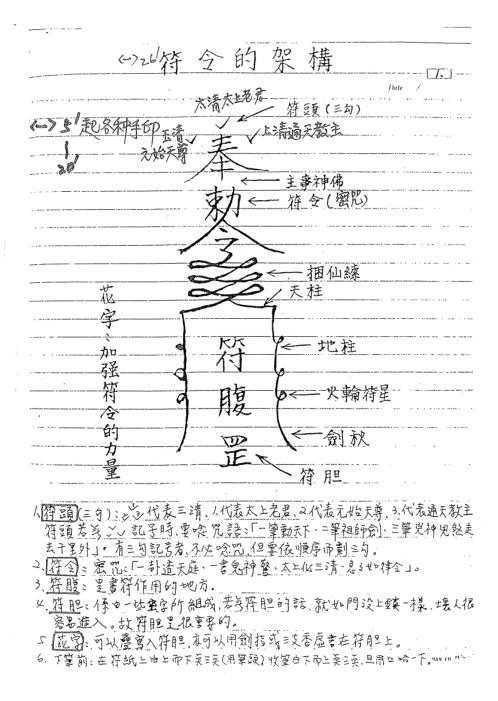 符令的架構
Date /
太清太上老君
符頭(三勾)
起各种手印
玉清
元始天尊
上清通天教主
奉
主事神佛
勅
符令(密咒)
令
捆仙縤
天柱
花字:加强符令的力量
符
腹
罡
地柱
火輪符星
劍秋
符胆
1. 符頭(三勾):代表三清,1.代表太上老君、2.代表元始天尊、3.代表通天教主
符頭若為 記子時,要唸咒語:「一筆動天下、二筆祖師劍、三筆兇神兇煞走
去千里外」。有三勾記号者,不必唸咒,但要依順序而劃三勾。
2. 符令:密咒:「一卦道天庭、一書鬼神驚、太上化三清、急々如律令」。
3. 符腹:是書符作用的地方。
4. 符胆:係由一些 字所組成,若為符胆的話,就如門沒上鎖一樣,壞人很
容易進入。故符胆是很重要的。
5. 花字:可以疊寫入符胆,亦可以用劍指或三支香虛書在符胆上。
6. 下筆前:在符紙上由上而下 (用筆頭)收筆由下而上 ,且用口哈一下。